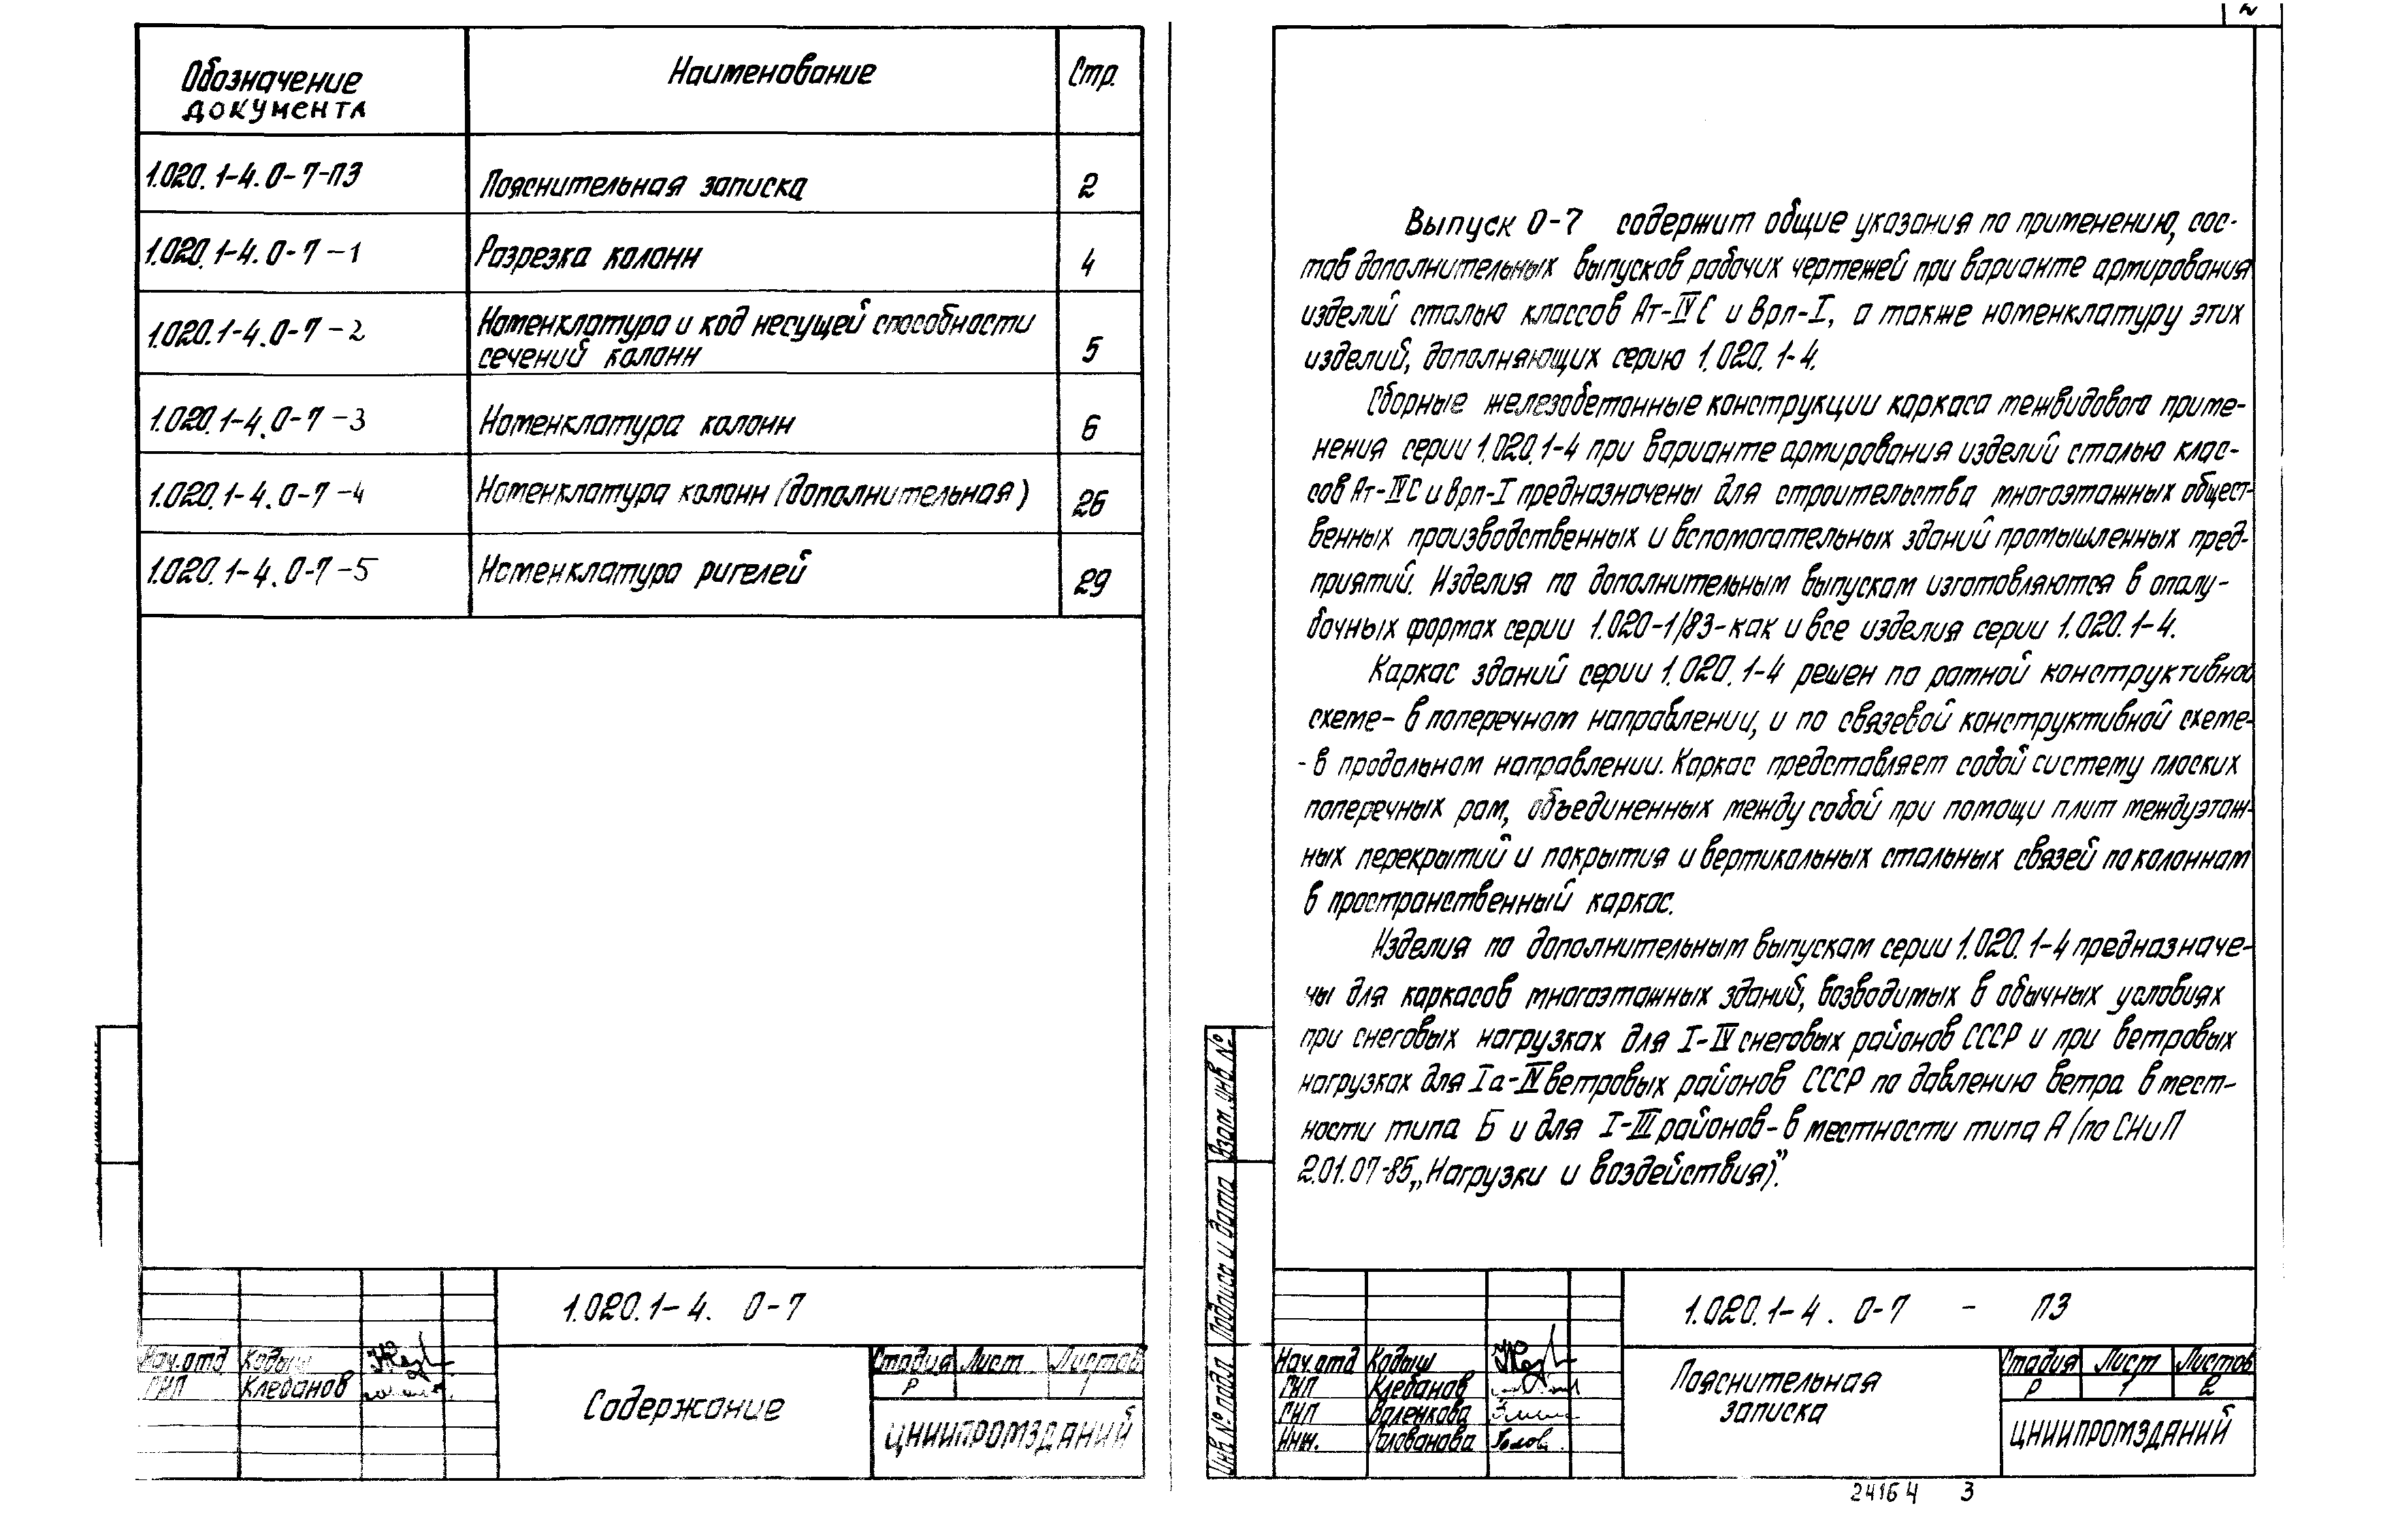 Обозначение документа	Наименование	Стр.
1.020.1-4.0-7-ПЗ	Пояснительная записка	2
1.020.1-4.0-7-1	Разрезка колонн	4
1.020.1-4.0-7-2	Номенклатура и код несущей способности
сечений колонн	5
1.020.1-4.0-7-3	Номенклатура колонн	6
1.020.1-4.0-7-4	Номенклатура колонн (дополнительная)	26
1.020.1-4.0-7-5	Номенклатура ригелей	29
1.020.1-4. 0-7
Нач.отд Кодыш
ГИП Клебанов
Содержание
Стадия Лист Листов
Р 1
ЦНИИПРОМЗДАНИЙ
2
Выпуск 0-7 содержит общие указания по применению, сос-
тав дополнительных выпусков рабочих чертежей при варианте армирования
изделий сталью классов Ат-IVС и Врп-I, а также номенклатуру этих
изделий, дополняющих серию 1.020.1-4.
Сборные железобетонные конструкции каркаса межвидового приме-
нения серии 1.020.1-4 при варианте армирования изделий сталью клас-
сов Ат-IVС и Врп-I предназначены для строительства многоэтажных общест-
венных производственных и вспомогательных зданий промышленных пред-
приятий. Изделия по дополнительным выпускам изготовляются в опалу-
бочных формах серии 1.020-1/83-как и все изделия серии 1.020.1-4.
Каркас зданий серии 1.020.1-4 решен по рамной конструктивной
схеме- в поперечном направлении, и по связевой конструктивной схеме-
-в продольном направлении. Каркас представляет собой систему плоских
поперечных рам, объединенных между собой при помощи плит междуэтаж-
ных перекрытий и покрытия и вертикальных стальных связей по колоннам
в пространственный каркас.
Изделия по дополнительным выпускам серии 1.020.1-4 предназначе-
ны для каркасов многоэтажных зданий, возводимых в обычных условиях
при снеговых нагрузках для I-IV снеговых районов СССР и при ветровых
нагрузках для Iа-IV ветровых районов СССР по давлению ветра в мест-
ности типа Б и для I-III районов-в местности типа А (по СНиП
2.01.07-85„Нагрузки и воздействия)".
Взам.инв.№
Подпись и дата
Инв.№ подл.
1.020.1-4. 0-7 - ПЗ
Нач.отд Кодыш
ГИП Клебанов
ГИП Воленкова
Инж. Голованова
Пояснительная
записка
Стадия Лист Листов
Р 1 2
ЦНИИПРОМЗДАНИЙ
24164 3